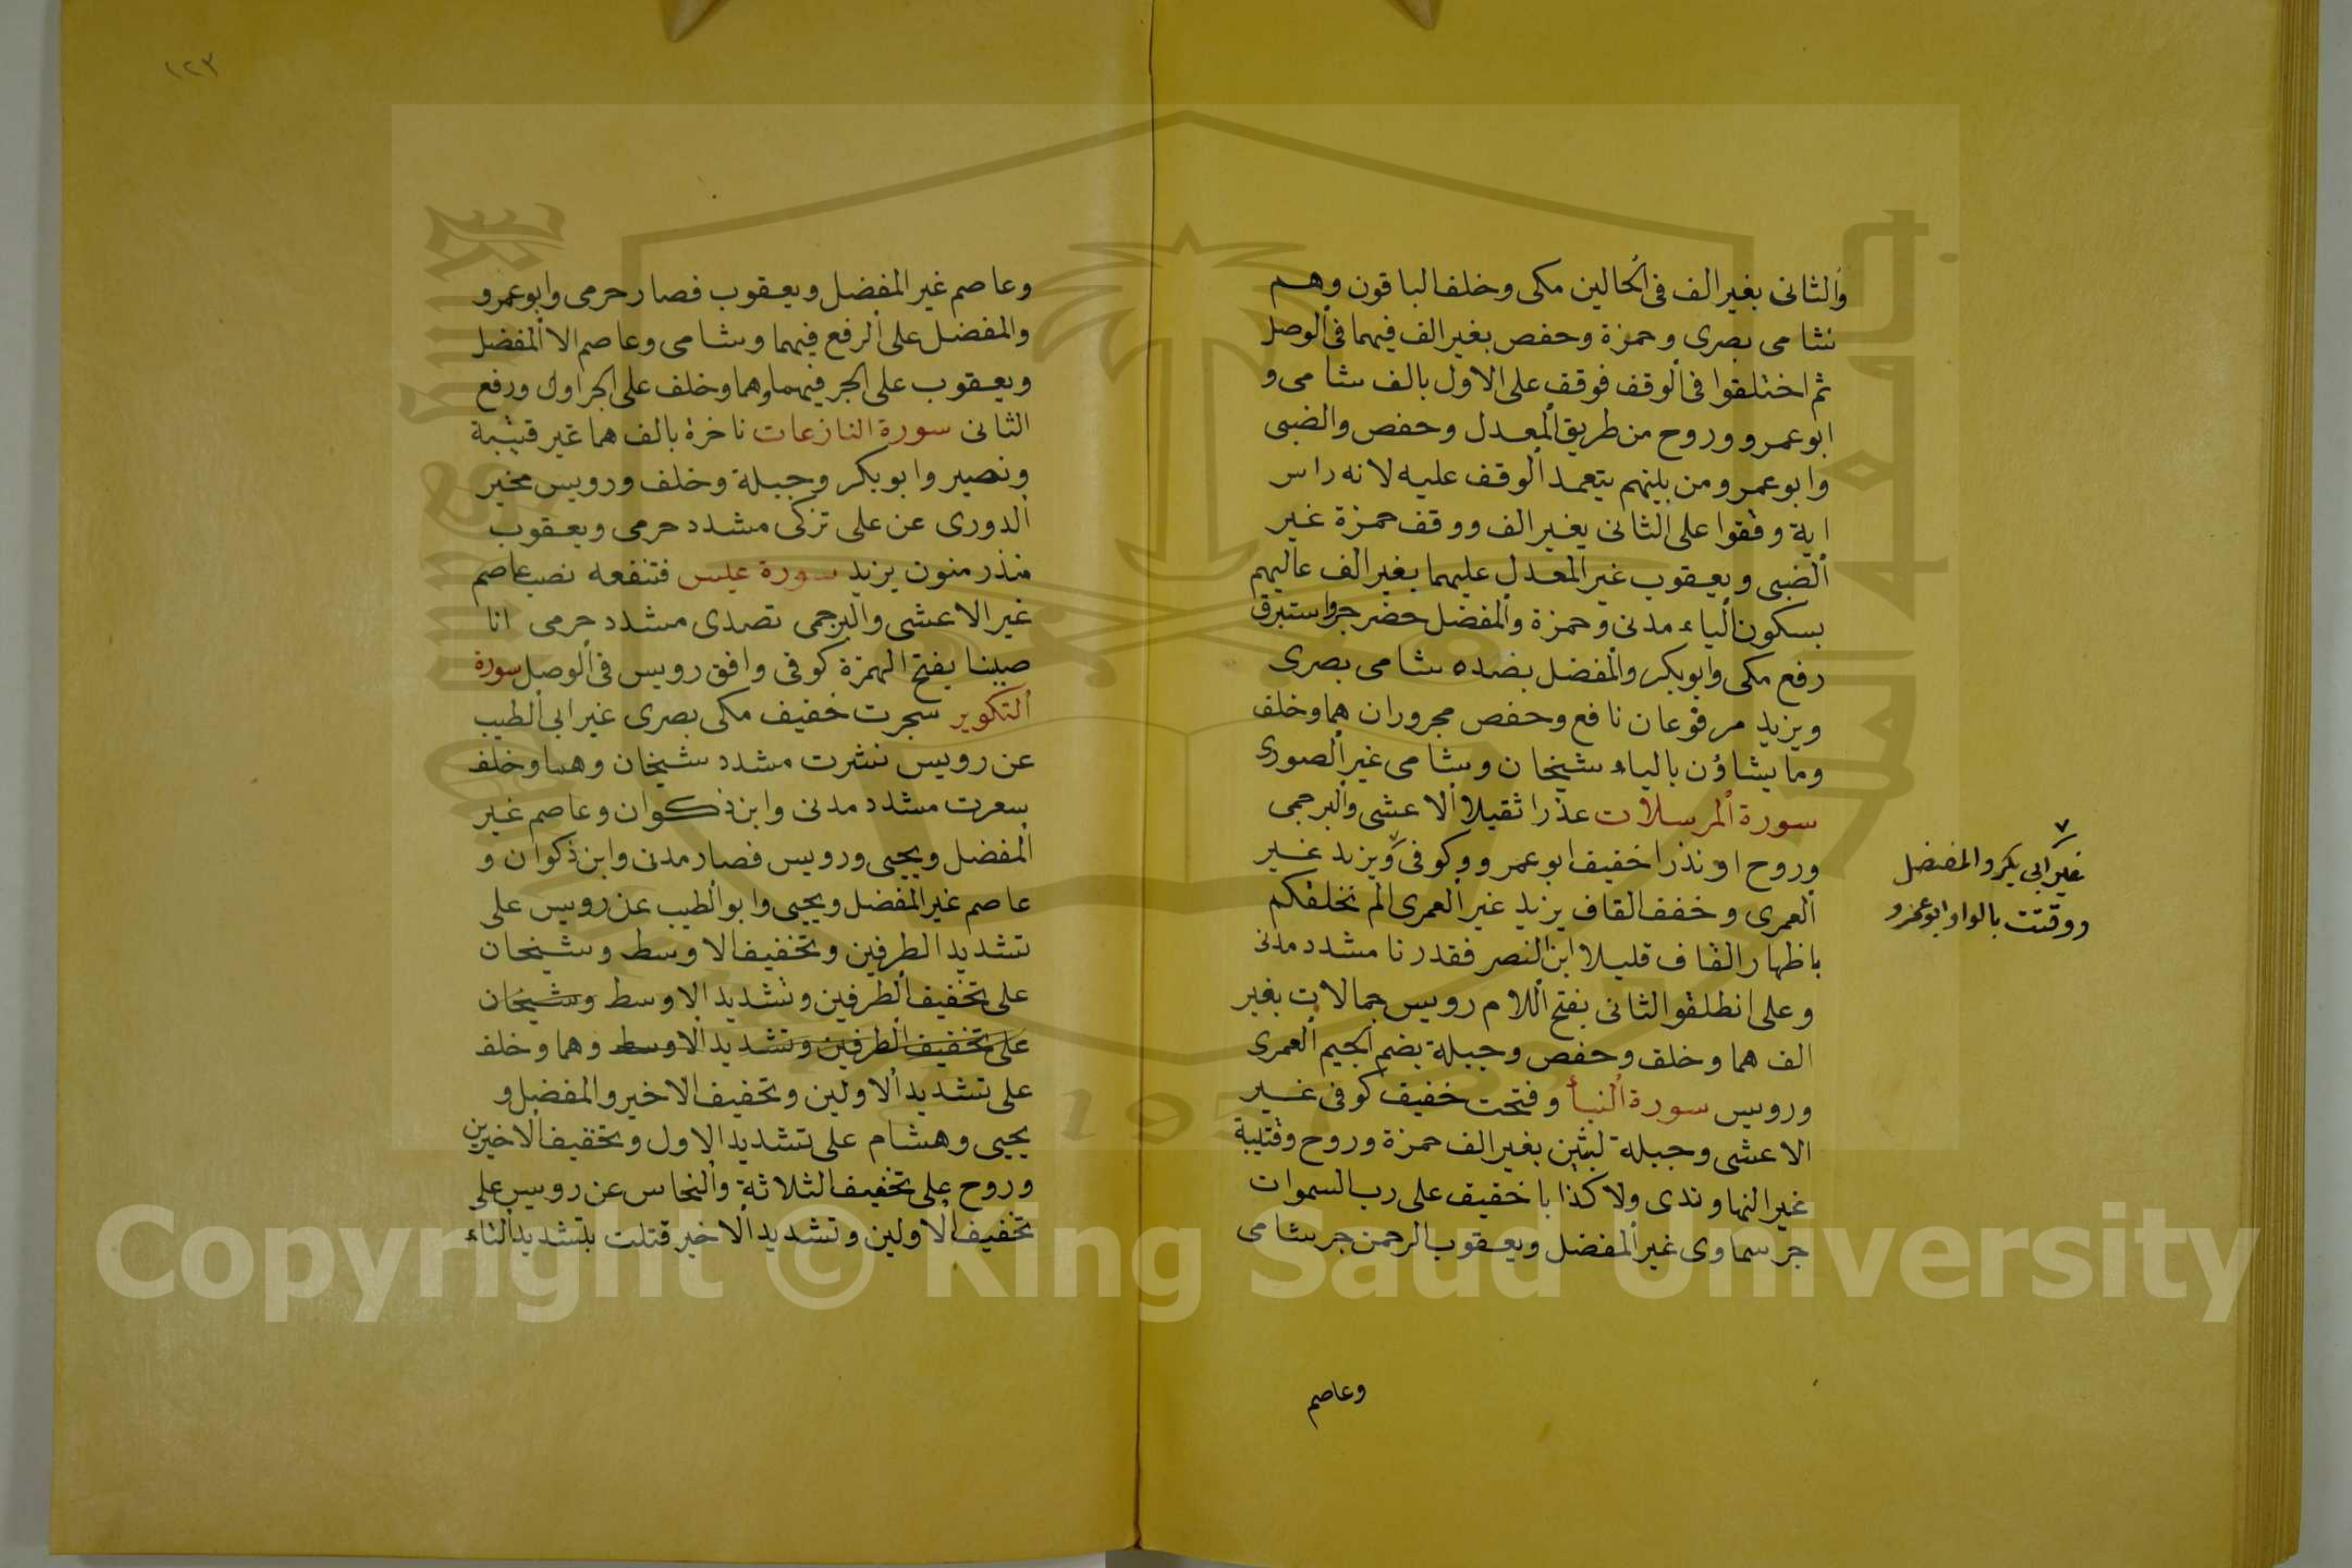 والثانى بغير الف فى الحالين مكى وخلف الباقون وهم
شامى بصرى وحمزة وحفص بغير الف فيهما فى الوصل
ثم اختلفوا فى الوقف فوقف على الاول بالف شامى و
ابو عمرو وروح من طريق المعدل وحفص والضبى
وابو عمرو من بينهم يتعمد الوقف عليه لانه راس
اية وقفوا على الثانى بغير الف ووقف حمزة غير
الضبى ويعقوب غير المعدل عليهما بغير الف عاليهم
بسكون الياء مدنى وحمزة والمفضل خضر جر واستبرق
رفع مكى وابو بكر والمفضل بضده شامى بصرى
ويزيد مرفوعان نافع وحفص مجروران هما وخلف
وما يشاؤن بالياء شيخان وشامى غير الصورى
سورة المرسلات عذرا ثقيلا الاعشى والبرجمى
وروح او نذرا خفيف ابو عمرو وكوفى ويزيد غير
العمرى وخفف القاف يزيد غير العمرى الم نخلقكم
باظهار القاف قليلا ابن النصر فقدرنا مشدد مدنى
وعلى انطلقوا الثانى بفتح اللام رويس جمالات بغير
الف هما وخلف وحفص وجبلة بضم الجيم العمرى
ورويس سورة النبأ وفتحت خفيف كوفى غير
الاعشى وجبلة لبثين بغير الف حمزة وروح وقتيبة
غير النهاوندى ولا كذابا خفيف على رب السموات
جر سماوى غير المفضل ويعقوب الرحمن جر شامى
غير ابى بكر والمفضل
ووقتت بالواو ابو عمرو
وعاصم
١٢٣
وعاصم غير المفضل ويعقوب فصار حرمى وابو عمرو
والمفضل على الرفع فيهما وشامى وعاصم الا المفضل
ويعقوب على الجر فيهما وهما وخلف على الجر اول ورفع
الثانى سورة النازعات ناخرة بالف هما غير قتيبة
ونصير وابو بكر وجبلة وخلف ورويس مخير
الدورى عن على تزكى مشدد حرمى ويعقوب
منذر منون يزيد سورة عبس فتنفعه نصب عاصم
غير الاعشى والبرجمى تصدى مشدد حرمى انا
صببنا بفتح الهمزة كوفى وافق رويس فى الوصل سورة
التكوير سجرت خفيف مكى بصرى غير ابى الطيب
عن رويس نشرت مشدد شيخان وهما وخلف
سعرت مشدد مدنى وابن ذكوان وعاصم غير
المفضل ويحيى ورويس فصار مدنى وابن ذكوان و
عاصم غير المفضل ويحيى وابو الطيب عن رويس على
تشديد الطرفين وتخفيف الاوسط وشيخان
على تخفيف الطرفين وتشديد الاوسط وشيخان
على تخفيف الطرفين وتشديد الاوسط وهما وخلف
على تشديد الاولين وتخفيف الاخير والمفضل و
يحيى وهشام على تشديد الاول وتخفيف الاخيرين
وروح على تخفيف الثلاثة والنخاس عن رويس على
تخفيف الاولين وتشديد الاخير قتلت بتشديد التاء
Copyright © King Saud University